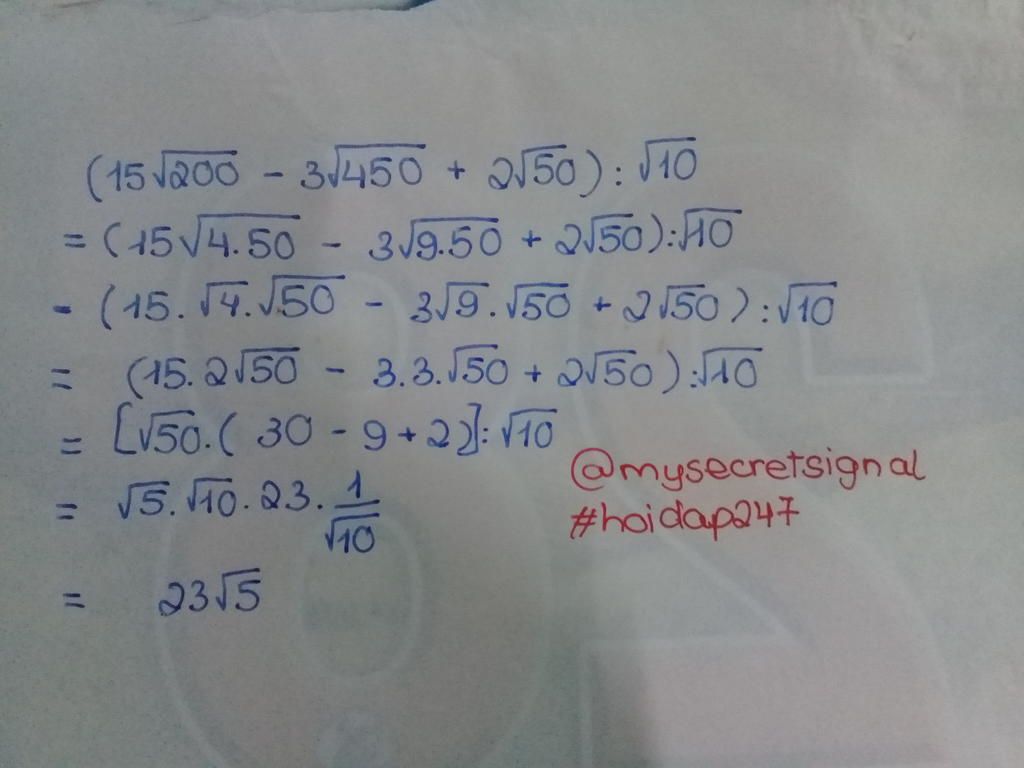 (15√200 - 3√450 + 2√50) : √10
= (15√4.50 - 3√9.50 + 2√50) : √10
- (15.√4.√50 - 3√9.√50 + 2√50) : √10
= (15.2√50 - 3.3.√50 + 2√50) : √10
= [√50.( 30 - 9 + 2)] : √10
= √5.√10.23.1/√10
= 23√5
@mysecretsignal
#hoidap247